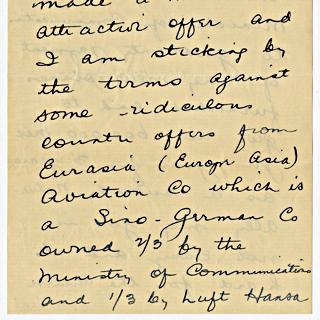 made a
attractive offer and
I am sticking by
the terms against
some ridiculous
counter offers from
Eurasia (Europe Asia)
Aviation Co which is
a Sino-German Co
owned 2/3 by the
Ministry of Communications
and 1/3 by Luft Hansa